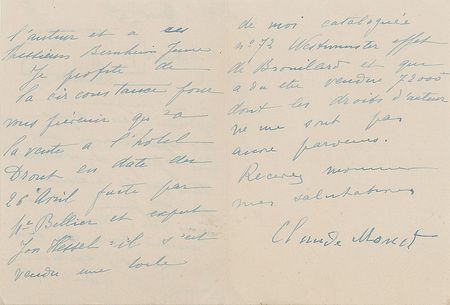 l'auteur et a ses
Messieurs Bernheim Jeune.
Je profite de
la circonstance pour
vous prévenir qu'a
la vente a l'hôtel
Drout en date du
26 Avril faite par
Me Bellier et expert
Jos Hessel il s'est
vendu une toile
de moi cataloguée
no 72 Westminster effet
de Brouillard et que
a du etre vendue 72000
dont les droits d'auteur
ne me sont pas
encore parvenus.
Recevez monsieur
mes salutations
Claude Monet